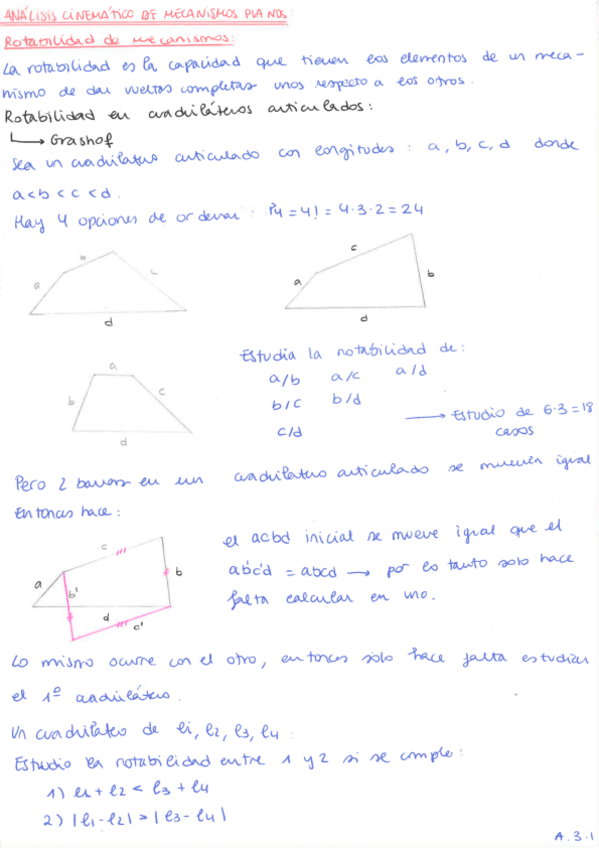 ANÁLISIS CINEMÁTICO DE MECANISMOS PLANOS:
Rotabilidad de mecanismos:
La rotabilidad es la capacidad que tienen los elementos de un meca-
nismo de dar vueltas completas unos respecto a los otros.
Rotabilidad en cuadriláteros articulados:
Grashof
Sea un cuadrilatero articulado con longitudes: a, b, c, d donde
a<b<c<d.
Hay 4 opciones de ordenar: P4 = 4! = 4·3·2 = 24
a
b
c
d
a
c
b
d
b
a
c
d
Estudia la rotabilidad de:
a/b a/c a/d
b/c b/d
c/d
→ Estudio de 6·3=18
casos
Pero 2 barras en un cuadrilatero articulado se mueven igual
Entonces hace:
a
c
b
b'
d
c'
el acbd inicial se mueve igual que el
ab'c'd = abcd → por lo tanto solo hace
falta calcular en uno.
Lo mismo ocurre con el otro, entonces solo hace falta estudiar
el 1º cuadrilátero.
Un cuadrilateo de l1, l2, l3, l4:
Estudio la rotabilidad entre 1 y 2 si se cumple:
1) l1 + l2 < l3 + l4
2) |l1-l2| > |l3-l4|
A.3.1